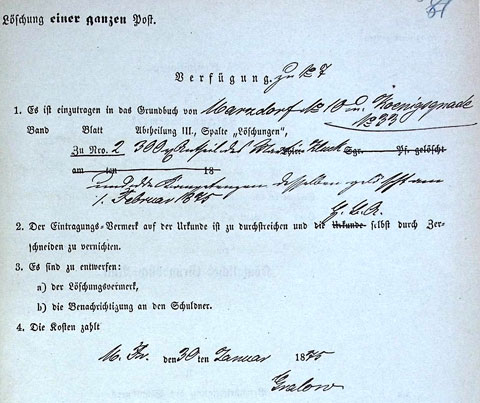 81
Löschung einer ganzen Post.
Verfügung. zu No 7
1. Es ist einzutragen in das Grundbuch von Marzdorf No 10 u. Koenigsgnade
No 33
Band Blatt Abtheilung III., Spalte „Löschungen“,
Zu Nro. 2 300 Antheil des Martin Kluck Sgr. Pf. gelöscht
am ten 18
und die desselben gelöscht am
1. Februar 1875
2. Der Eintragungs-Vermerk auf der Urkunde ist zu durchstreichen und die Urkunde selbst durch Zer-
schneiden zu vernichten.
3. Es sind zu entwerfen:
a) der Löschungsvermerk,
b) die Benachrichtigung an den Schuldner.
4. Die Kosten zahlt
M. Fr. den 30ten Januar 1875
Gralow